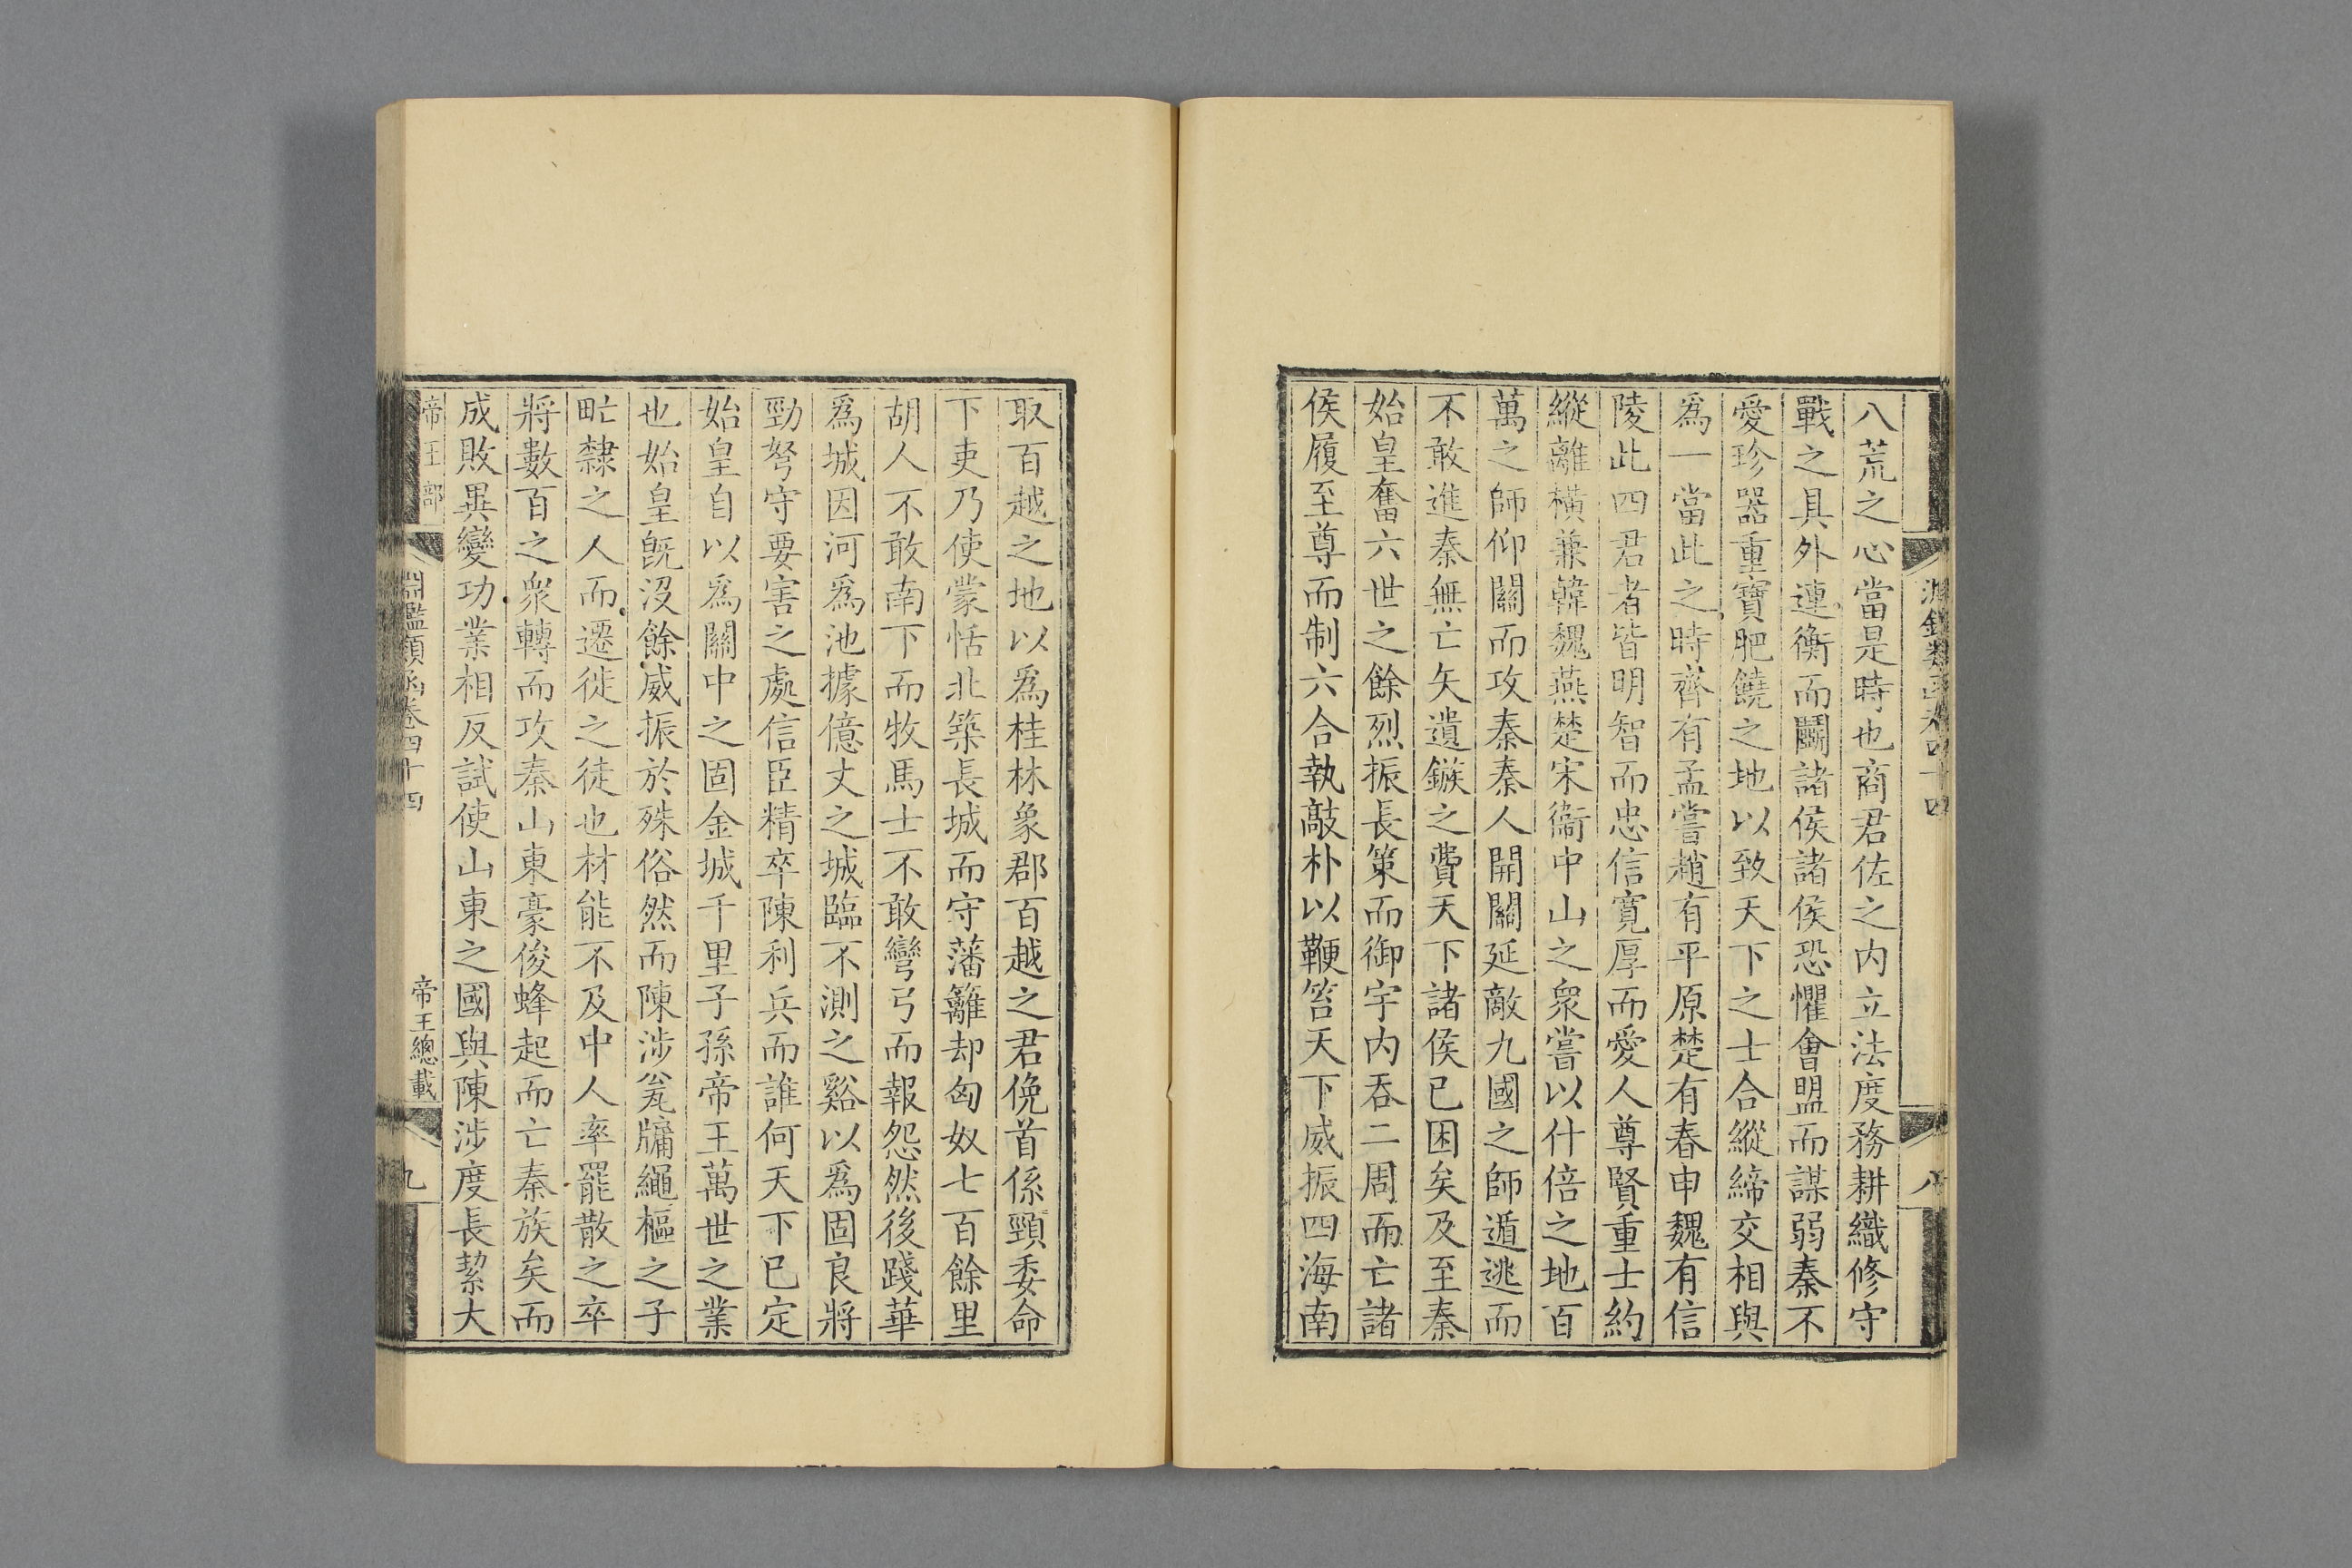 淵鑑類函卷四十四
八
八荒之心當是時也商君佐之内立法度務耕織修守
戰之具外連衡而鬭諸侯諸侯恐懼會盟而謀弱秦不
愛珍器重寶肥饒之地以致天下之士合縱締交相與
爲一當此之時齊有孟嘗趙有平原楚有春申魏有信
陵此四君者皆明智而忠信寬厚而愛人尊賢重士約
縱離橫兼韓魏燕楚宋衞中山之衆嘗以什倍之地百
萬之師仰關而攻秦秦人開關延敵九國之師遁逃而
不敢進秦無亡矢遺鏃之費天下諸侯已困矣及至秦
始皇奮六世之餘烈振長策而御宇内吞二周而亡諸
侯履至尊而制六合執敲朴以鞭笞天下威振四海南
取百越之地以爲桂林象郡百越之君俛首係頸委命
下吏乃使蒙恬北築長城而守藩籬却匈奴七百餘里
胡人不敢南下而牧馬士不敢彎弓而報怨然後踐華
爲城因河爲池據億丈之城臨不測之谿以爲固良將
勁弩守要害之處信臣精卒陳利兵而誰何天下已定
始皇自以爲關中之固金城千里子孫帝王萬世之業
也始皇既沒餘威振於殊俗然而陳涉瓮牖繩樞之子
甿隸之人而遷徙之徒也材能不及中人率罷散之卒
將數百之衆轉而攻秦山東豪俊蜂起而亡秦族矣而
成敗異變功業相反試使山東之國與陳涉度長絜大
帝王部
淵鑑類函卷四十四
帝王總載
九